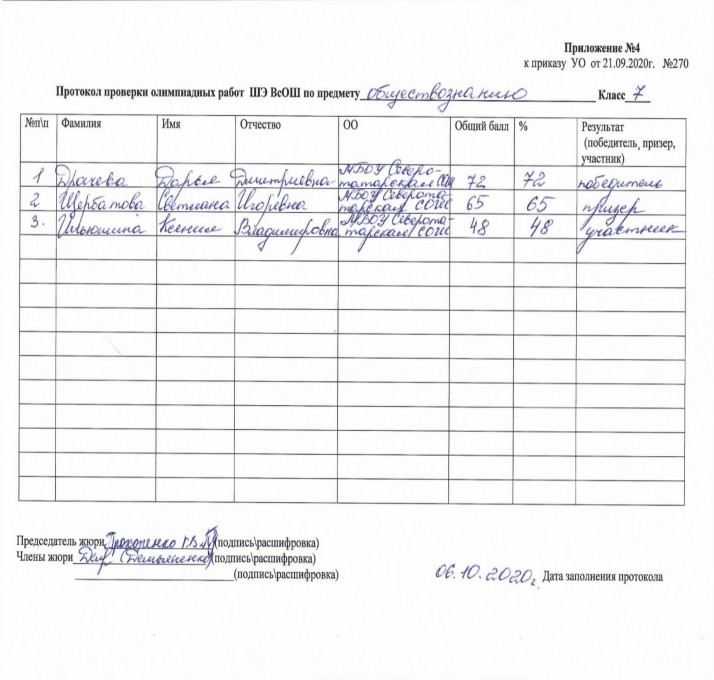 Приложение №4
к приказу УО от 21.09.2020г. №270
Протокол проверки олимпиадных работ ШЭ ВсОШ по предмету обществознанию Класс 7
№п\п Фамилия Имя Отчество ОО Общий балл % Результат
(победитель, призер,
участник)
1 Драчева Дарья Дмитриевна МБОУ Северо-
татарская СОШ 72 72 победитель
2 Щербатова Светлана Игоревна МБОУ Северота-
тарская СОШ 65 65 призер
3. Ильюшина Ксения Владимировна МБОУ Северота-
тарская СОШ 48 48 участник
Председатель жюри Прокопенко Г.В. (подпись\расшифровка)
Члены жюри (Демьяненко) (подпись\расшифровка)
(подпись\расшифровка) 06.10.2020г. Дата заполнения протокола